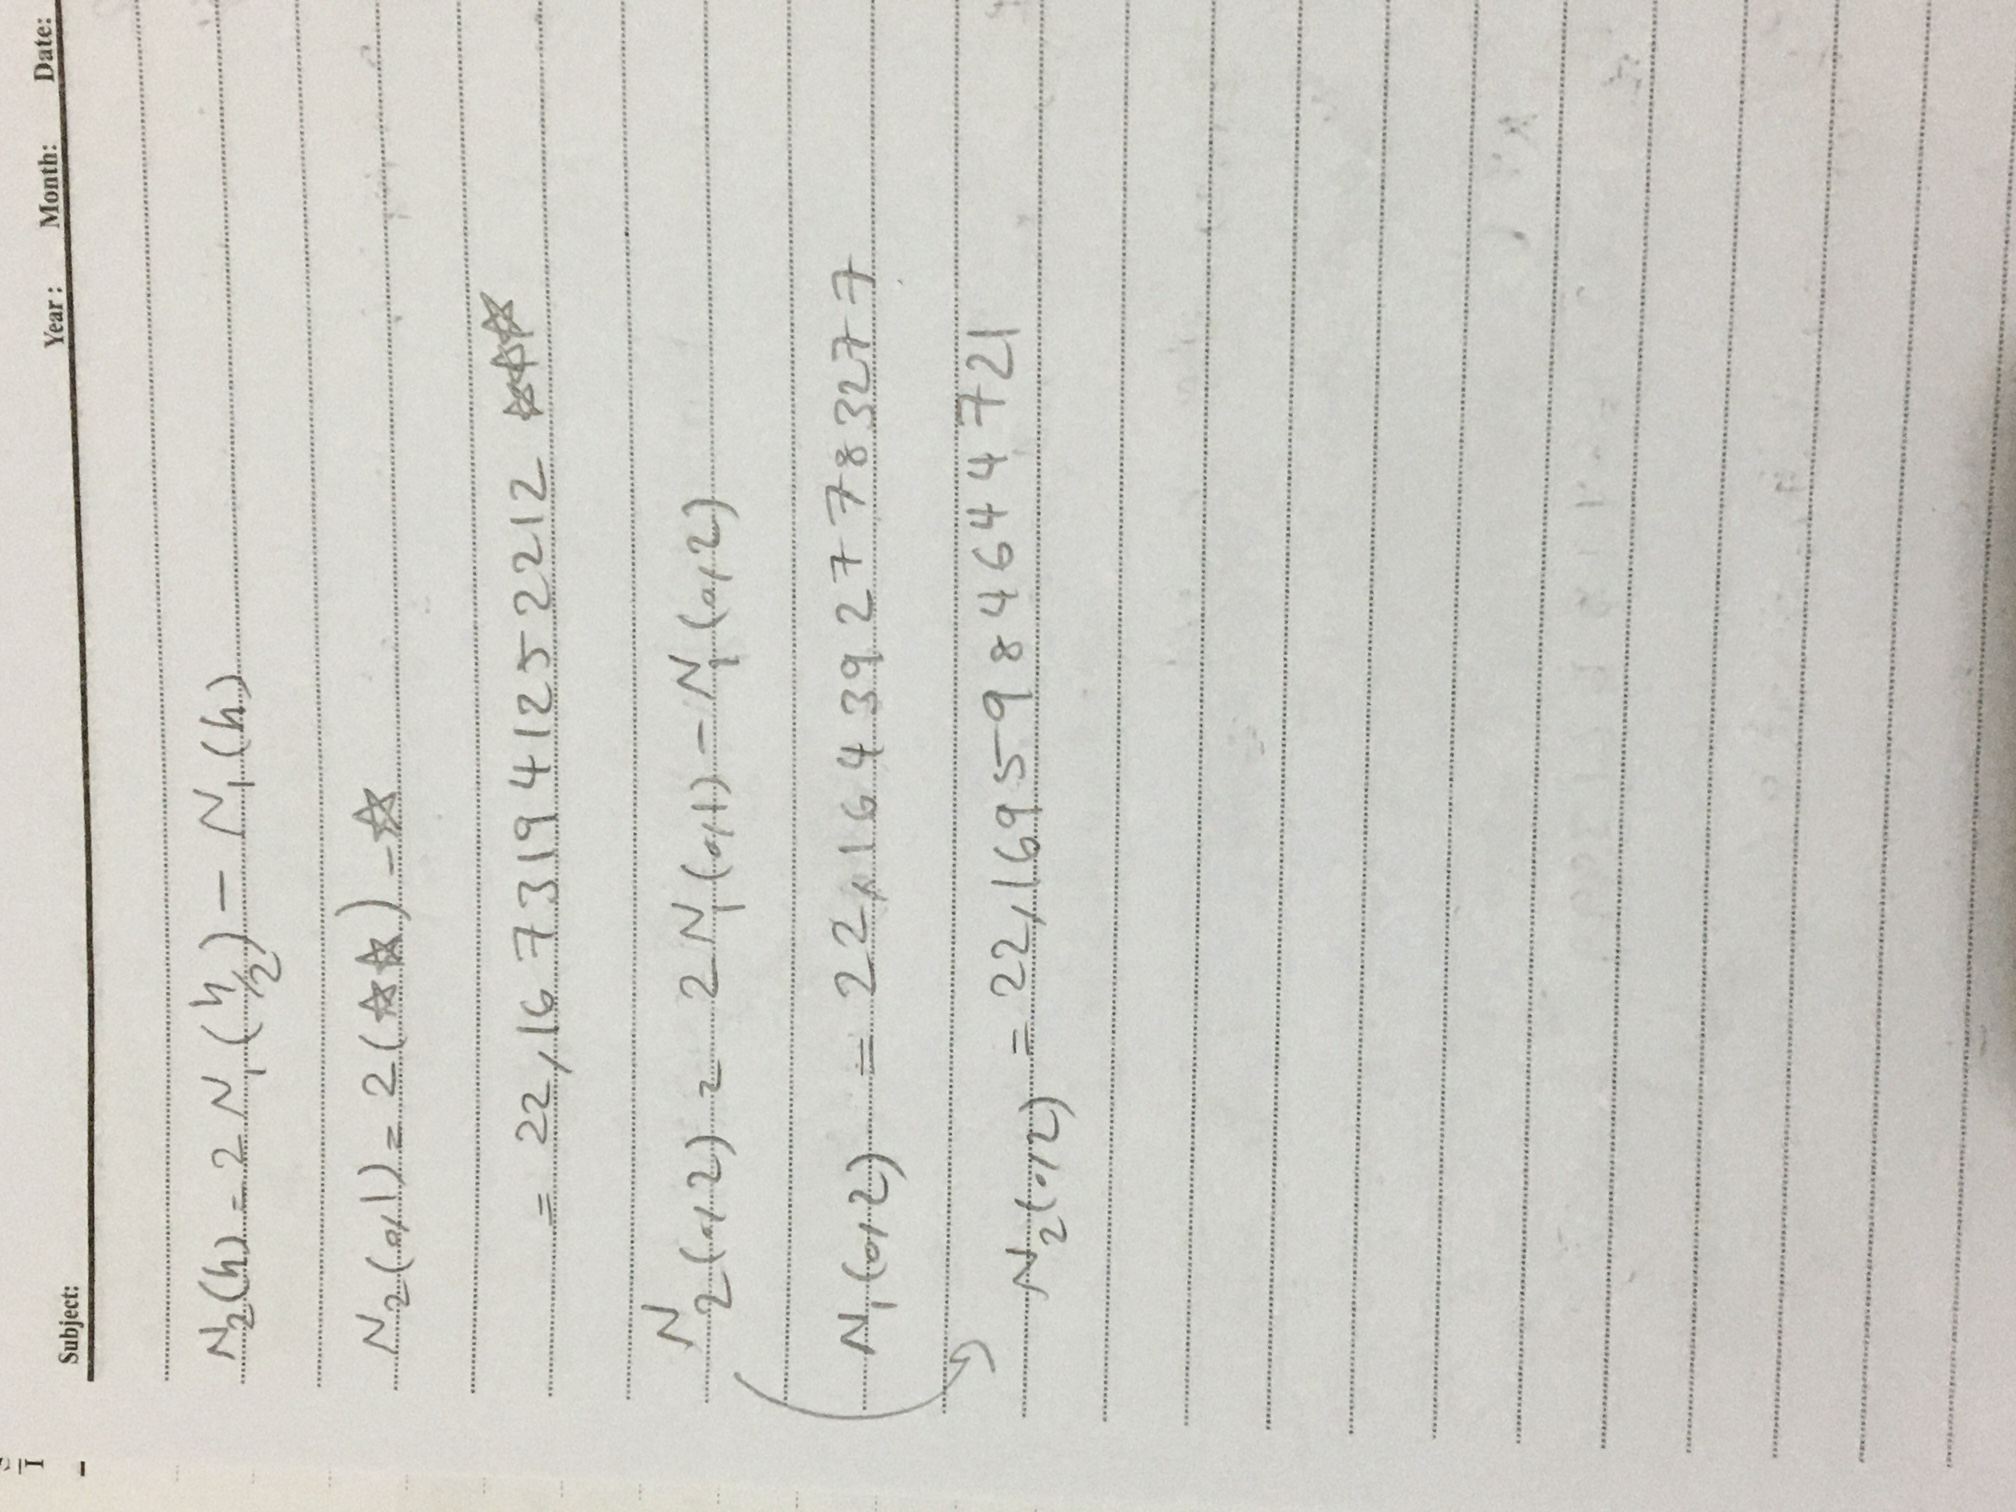 Subject: Year: Month: Date:
N₂(h) = 2 N₁(h/2) − N₁(h)
N₂(0,1) = 2(☆☆) − ☆
= 22,16731941252212 ☆☆☆
N₂(0,2) = 2 N₁(0,1) − N₁(0,2)
N₁(0,2) = 22,16439277783277
N₂(0,2) = 22,16959846447​21